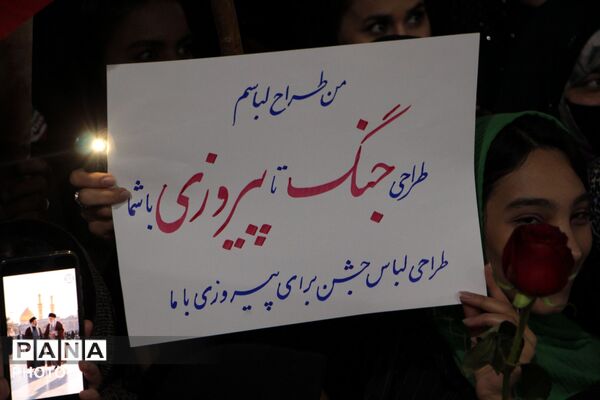 من طراح لباسم
طراحی جنگ تا پیروزی با شما
طراحی لباس جشن برای پیروزی با ما
PANA
PHOTO